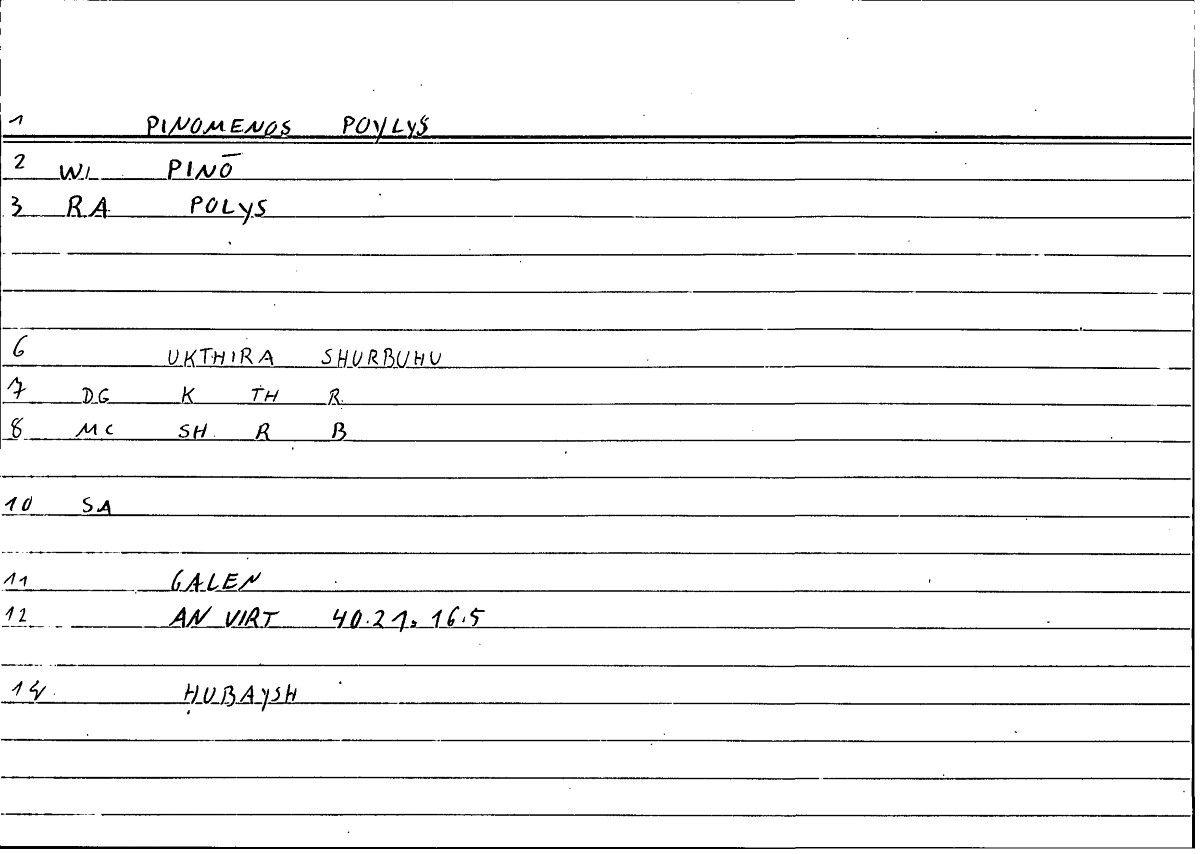 1 PINOMENOS POYLYS
2 WI PINŌ
3 RA POLYS
6 UKTHIRA SHURBUHU
7 DG K TH R
8 MC SH R B
10 SA
11 GALEN
12 AN VIRT 40.21, 16.5
14 ḤUBAYSH